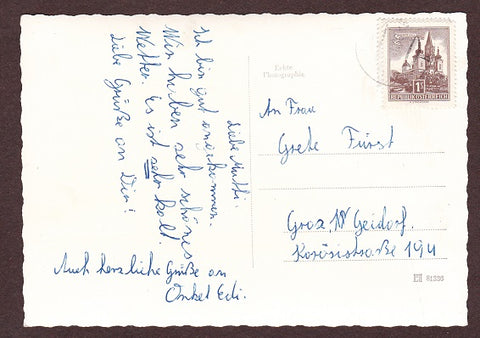 Liebe Mutti.
Ich bin gut angekommen.
Wir haben sehr schönes
Wetter. Es ist sehr kalt.
Liebe Grüße an Dir!
Auch herzliche Grüße an
Onkel Edi.
Echte
Photographie
1S
REPUBLIK ÖSTERREICH
An Frau
Grete Fürst
Graz, IV Geidorf.
Körösistraße 194
81336